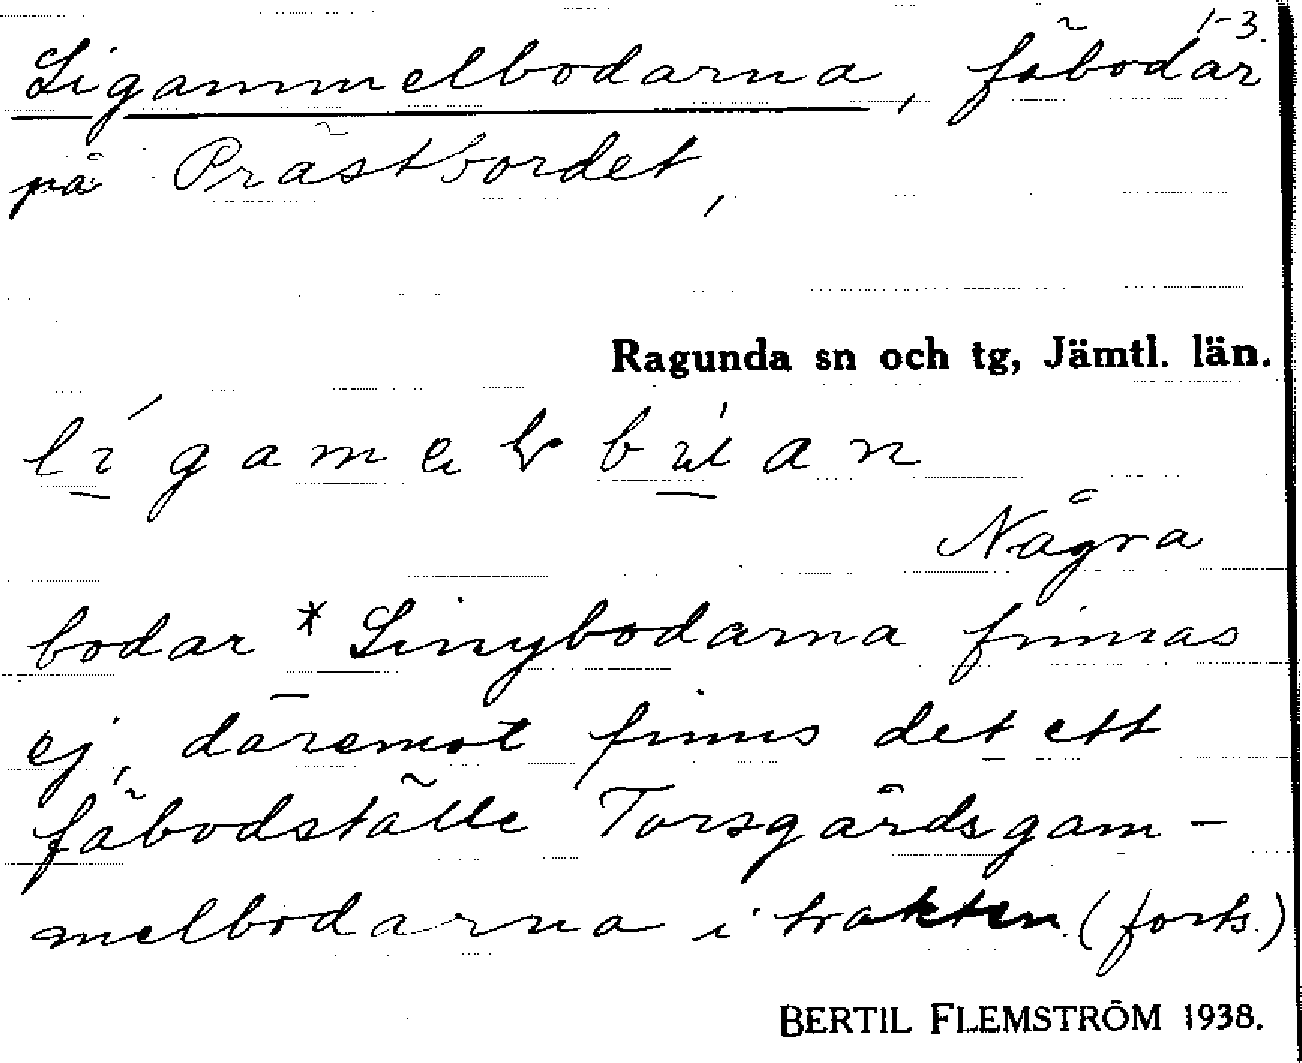 1-3.
Ligammelbodarna, fäbodar
på Prästbordet,
Ragunda sn och tg, Jämtl. län.
Några
bodar * Linybodarna finnas
ej, däremot finns det ett
fäbodställe Torsgårdsgam-
melbodarna i trakten. (forts.)
BERTIL FLEMSTRÖM 1938.